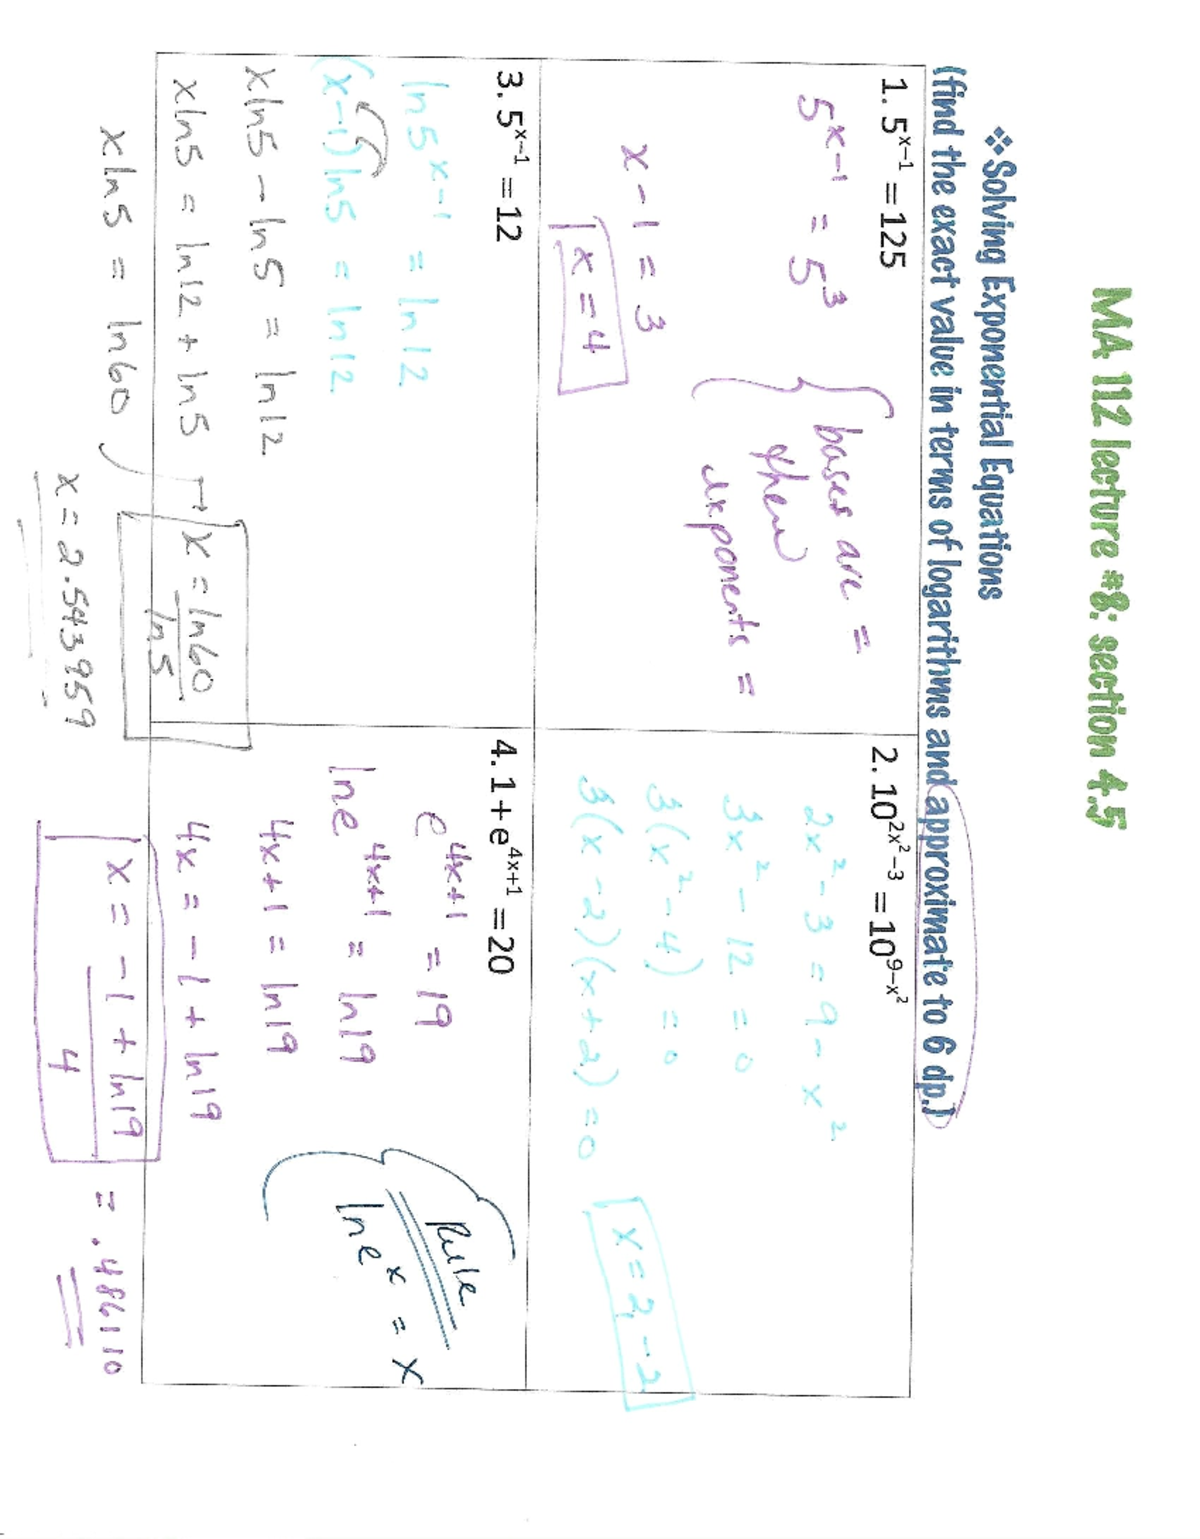 MA 112 lecture #8: section 4.5
❖Solving Exponential Equations
(find the exact value in terms of logarithms and approximate to 6 dp.)
1. 5^{x-1} = 125
5^{x-1} = 5^3
x - 1 = 3
x = 4
bases are =
then
exponents =
2. 10^{2x²-3} = 10^{9-x²}
2x² - 3 = 9 - x²
3x² - 12 = 0
3(x² - 4) = 0
3(x - 2)(x + 2) = 0
x = 2, -2
3. 5^{x-1} = 12
ln 5^{x-1} = ln 12
(x-1) ln 5 = ln 12
x ln 5 - ln 5 = ln 12
x ln 5 = ln 12 + ln 5
x ln 5 = ln 60
→ x = ln 60 / ln 5
x = 2.543959
4. 1 + e^{4x+1} = 20
e^{4x+1} = 19
ln e^{4x+1} = ln 19
4x + 1 = ln 19
4x = -1 + ln 19
x = (-1 + ln 19) / 4 = .486110
Rule
ln e^x = x